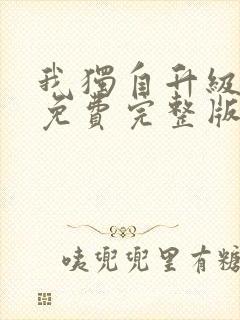 我獨自升級
免費完整版
咦兜兜里有糖